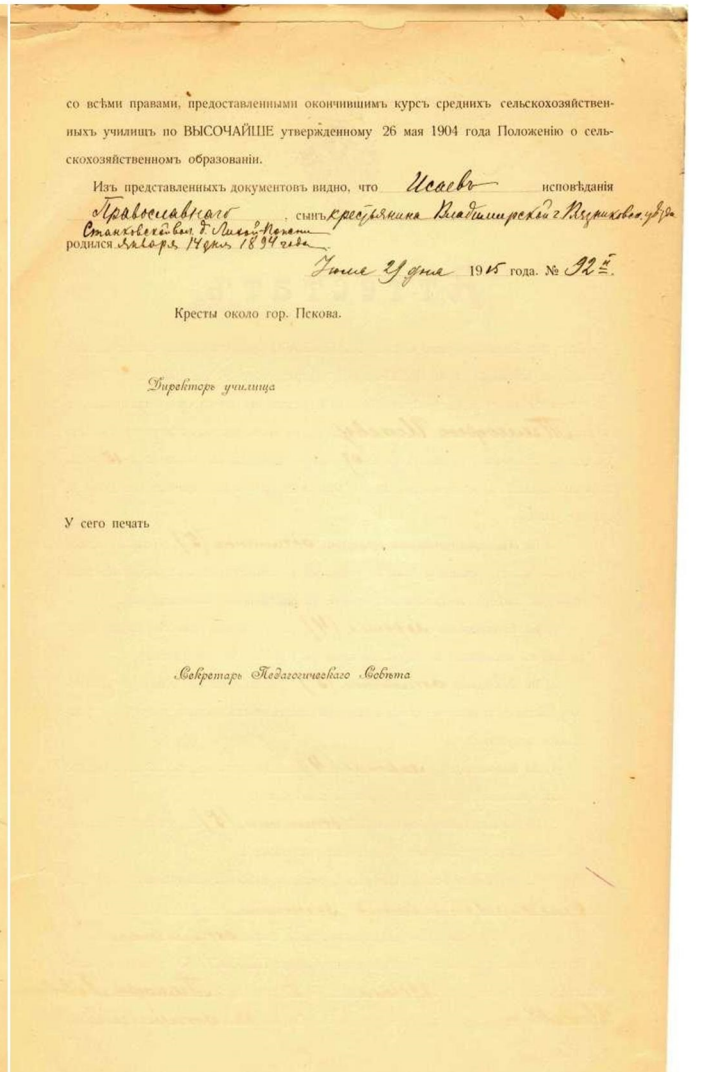 со всѣми правами, предоставленными окончившимъ курсъ среднихъ сельскохозяйствен-
ныхъ училищъ по ВЫСОЧАЙШЕ утвержденному 26 мая 1904 года Положенію о сель-
скохозяйственномъ образованіи.
Изъ представленныхъ документовъ видно, что Исаевъ исповѣданія
Православнаго, сынъ крестьянина Владимирской г. Вязниковск. уѣзда
Станковской вол. д.
родился января 14 дня 1894 года.
29 дня 1915 года. № 92
Кресты около гор. Пскова.
Директоръ училища
У сего печать
Секретарь Педагогическаго Совѣта